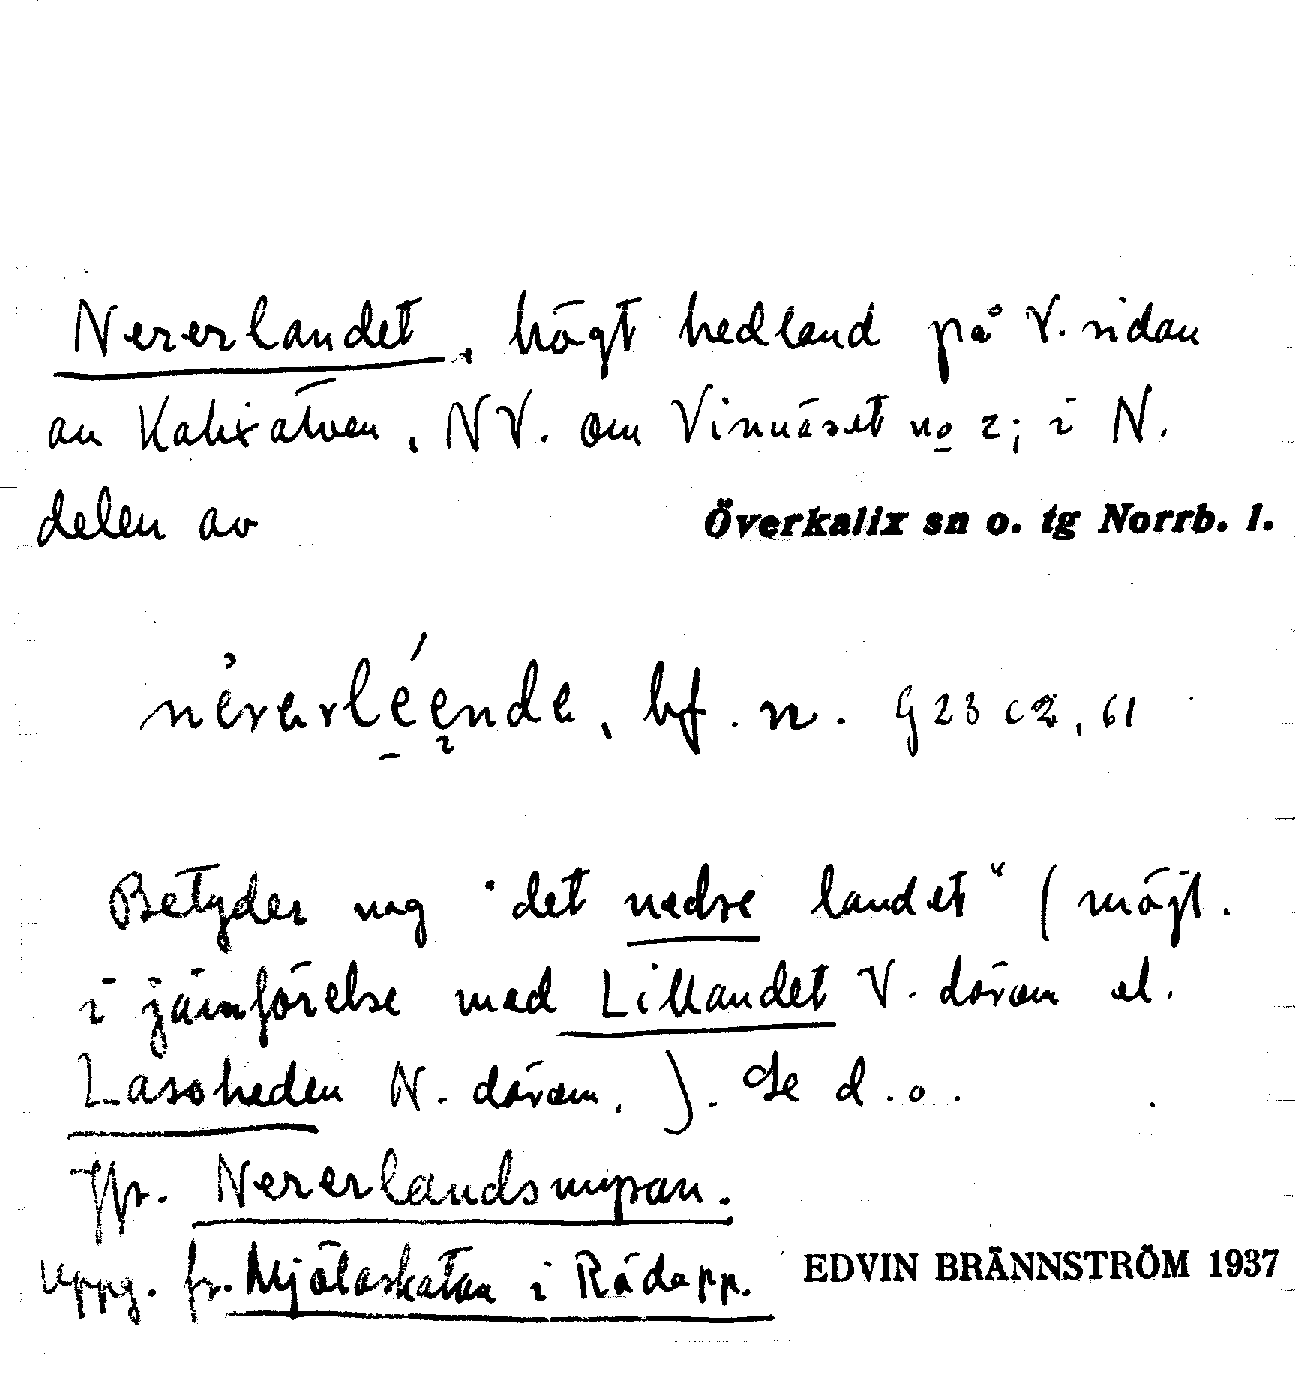 Nererlandet, högt hedland på V. sidan
av Kalixälven, NV. om Vinnäset no 2; i N.
delen av Överkalix sn o. tg Norrb. l.
bf. n. G 23 c 2, 61
Betyder nog "det nedre landet" (möjl.
i jämförelse med Lillandet V. därom el.
Lassheden N. därom.). Se d.o.
Jfr. Nererlandsmyran.
Uppg. fr. i Rödupp. EDVIN BRÄNNSTRÖM 1937